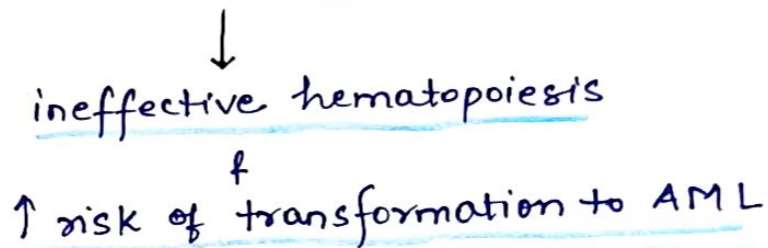 ↓
ineffective hematopoiesis
&
↑ risk of transformation to AML